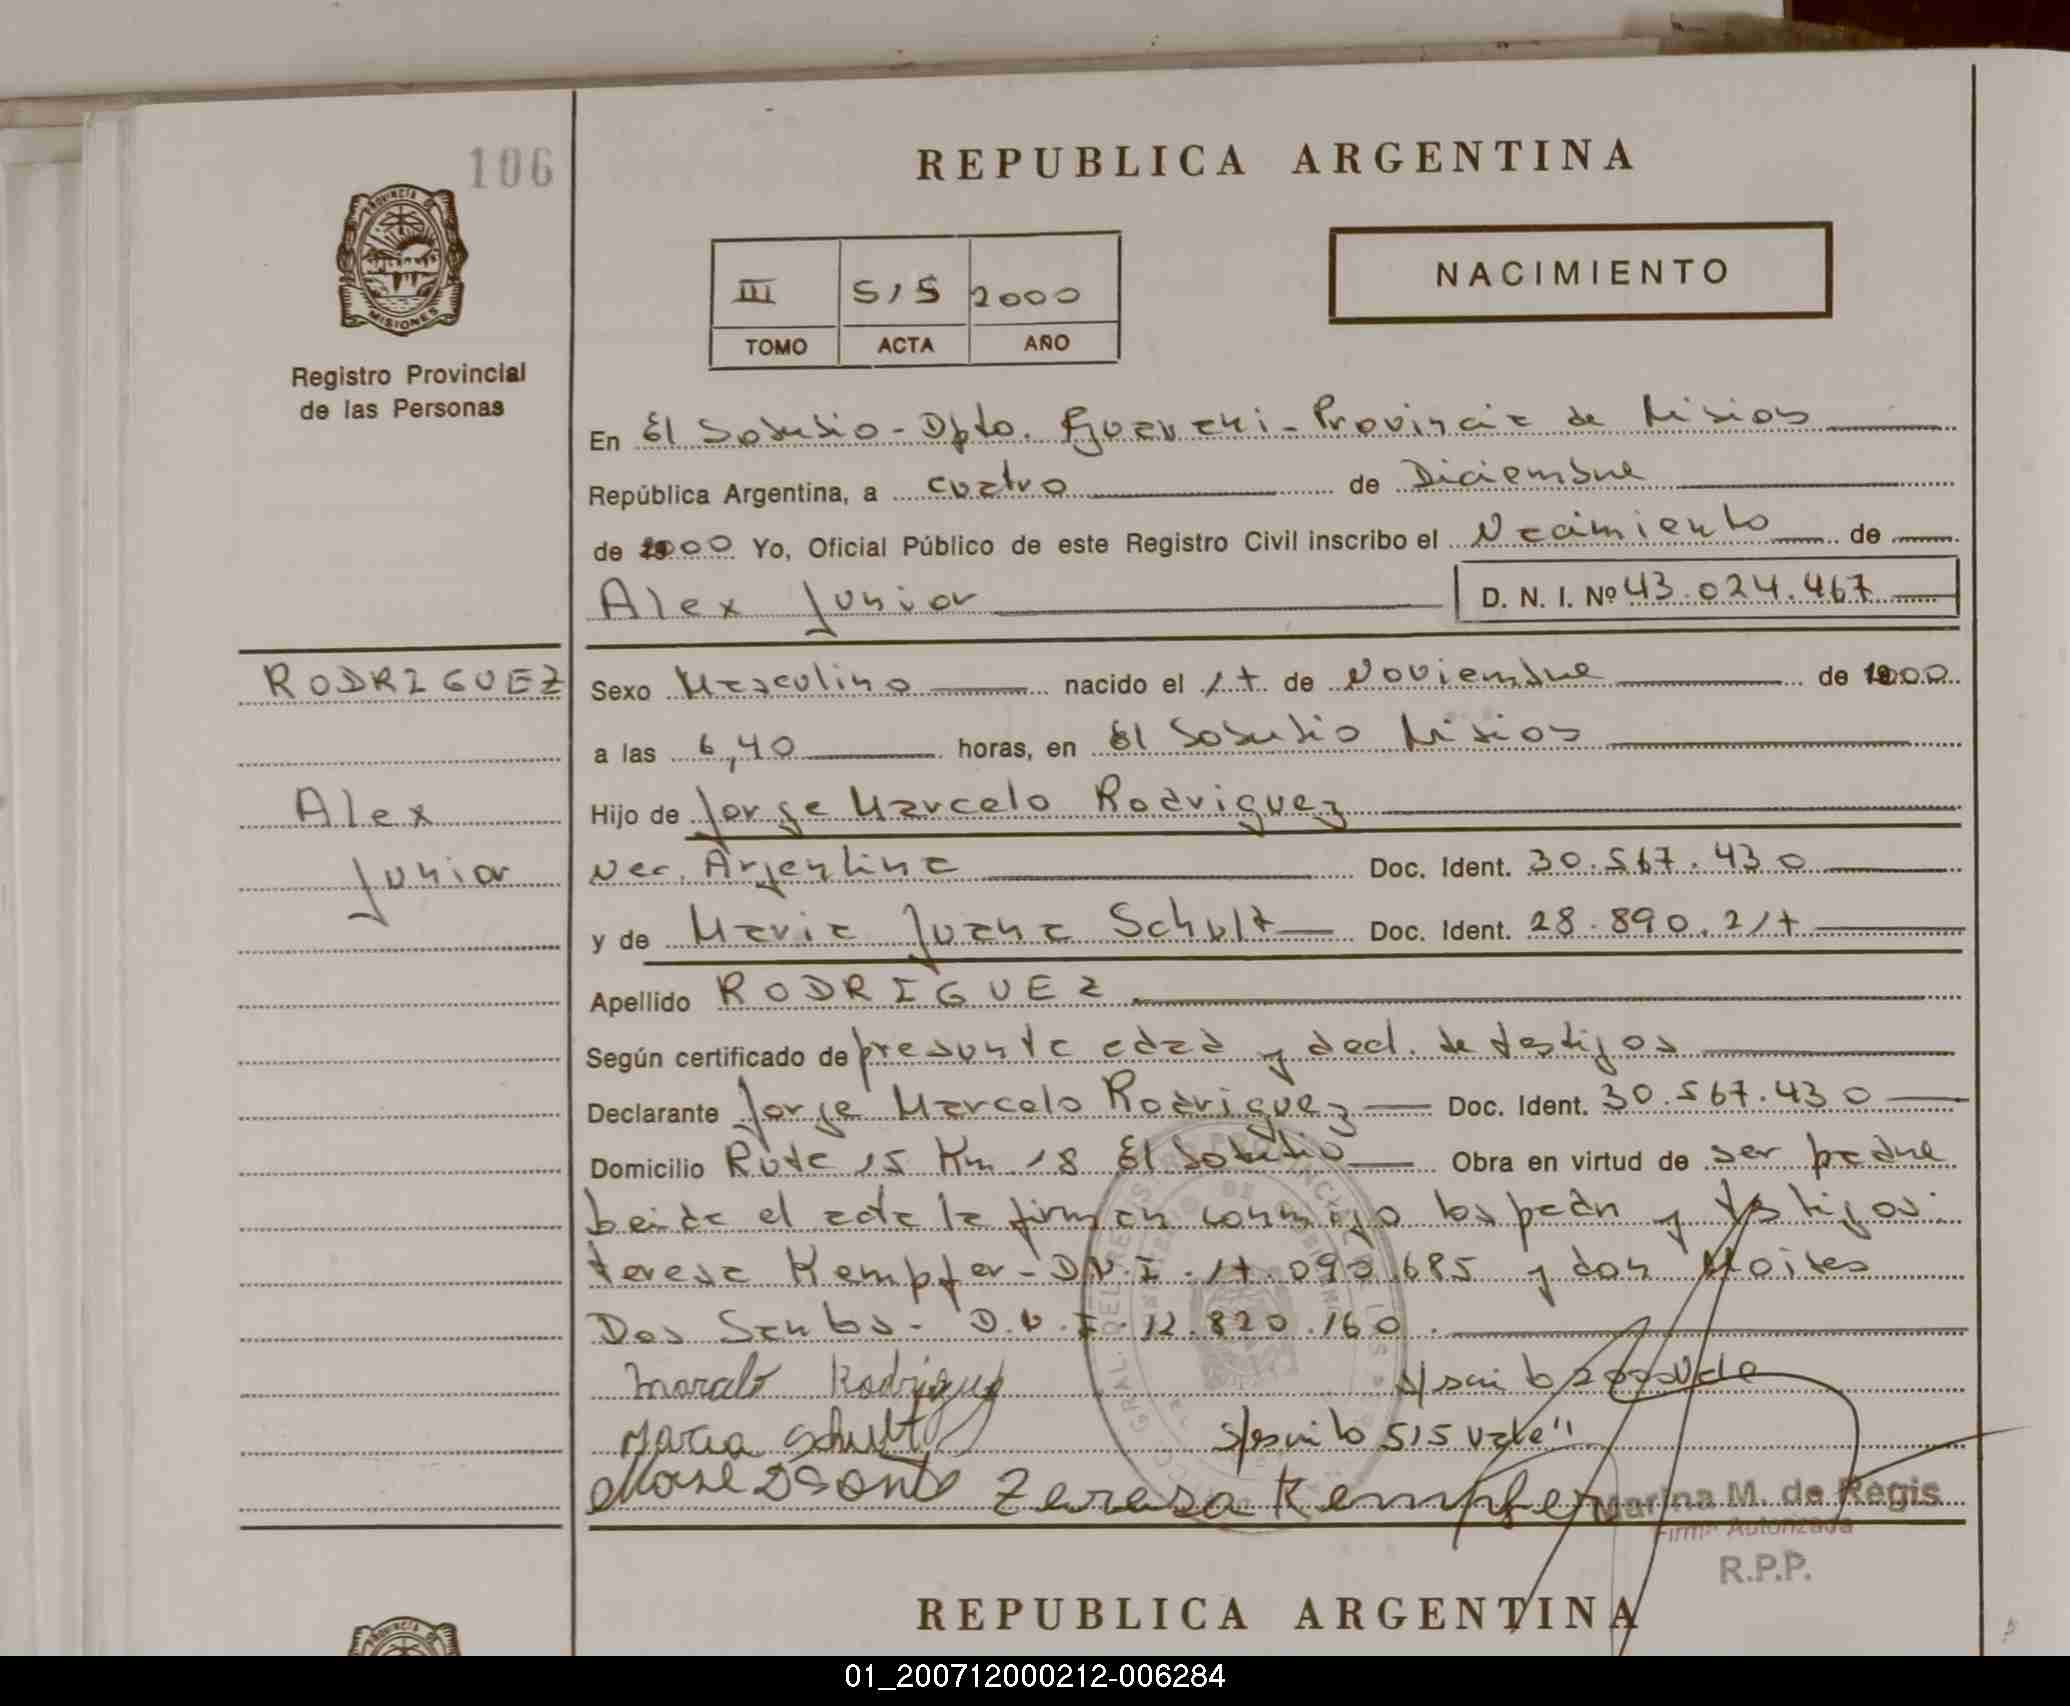 106
REPUBLICA ARGENTINA
PROVINCIA DE
MISIONES
Registro Provincial
de las Personas
III 515 2000
TOMO ACTA AÑO
NACIMIENTO
En El Soberbio - Dpto. Guarani - Provincia de Misiones
República Argentina, a cuatro de Diciembre
de 2000 Yo, Oficial Público de este Registro Civil inscribo el Nacimiento de
Alex Junior D. N. I. Nº 43.024.467
RODRIGUEZ
Alex
Junior
Sexo Masculino nacido el 17 de Noviembre de 2000
a las 6,40 horas, en El Soberbio Misiones
Hijo de Jorge Marcelo Rodriguez
Nac. Argentina Doc. Ident. 30.567.430
y de Maria Juana Schult Doc. Ident. 28.890.217
Apellido RODRIGUEZ
Según certificado de presunta edad y decl. de testigos
Declarante Jorge Marcelo Rodriguez Doc. Ident. 30.567.430
Domicilio Ruta 15 Km 18 El Soberbio Obra en virtud de ser padre
el acta la firman conmigo los padr y testigos:
teresa Kempfer - D.N.I. 17.090.685 y don Moises
Dos Santos - D.N.I. 12.820.160.
Marcelo Rodriguez s/escrito 2000 vale
Maria Schult s/escrito 515 vale"
Teresa Kempfer
Marina M. de Regis
Firma Autorizada
R.P.P.
REPUBLICA ARGENTINA
01_200712000212-006284